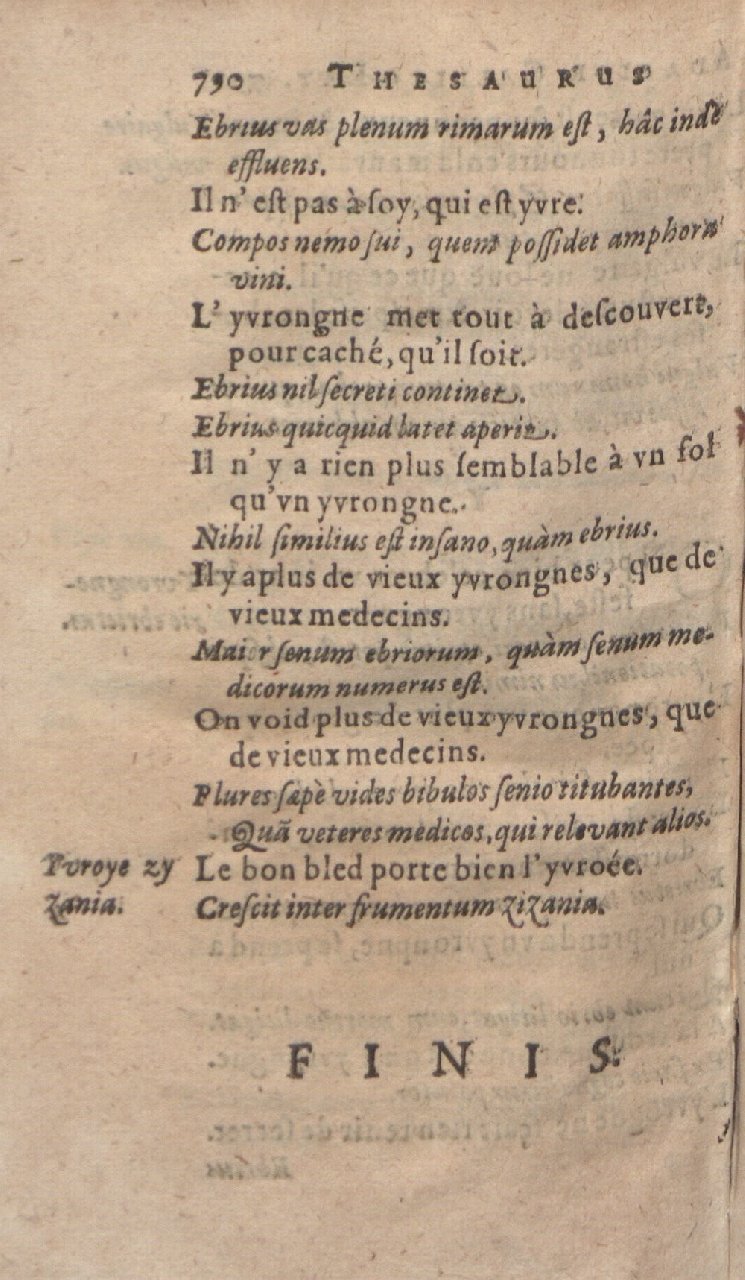 790 THESAURUS
Ebrius vas plenum rimarum eſt, hâc inde
effluens.
Il n'eſt pas à ſoy, qui eſt yvre.
Compos nemo ſui, quem poſſidet amphora
vini.
L'yvrongne met tout à deſcouvert,
pour caché, qu'il ſoit.
Ebrius nil ſecreti continet.
Ebrius quicquid latet aperit.
Il n'y a rien plus ſemblable à vn fol
qu'vn yvrongne.
Nihil ſimilius eſt inſano, quàm ebrius.
Il y a plus de vieux yvrongnes, que de
vieux medecins.
Maior ſenum ebriorum, quàm ſenum me-
dicorum numerus eſt.
On void plus de vieux yvrongnes, que
de vieux medecins.
Plures ſæpè vides bibulos ſenio titubantes,
Quā veteres medicos, qui relevant alios.
Yvroye zy
zania.
Le bon bled porte bien l'yvroée.
Creſcit inter frumentum zizania.
FINIS.